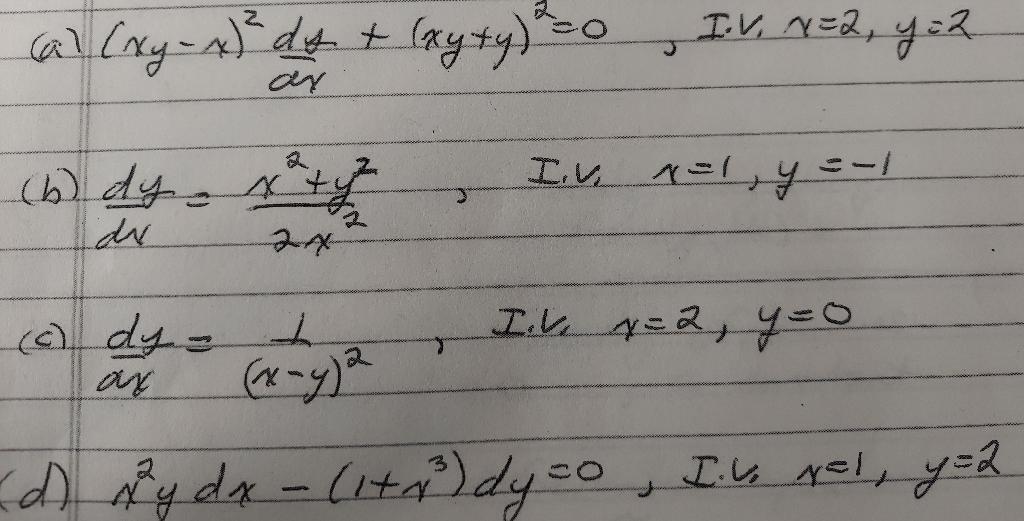 (a) (xy-x)² dy/dx + (xy+y)² = 0 , I.V. x=2, y=2
(b) dy/dx = x²+y²/2x² , I.V. x=1, y=-1
(c) dy/dx = 1/(x-y)² , I.V. x=2, y=0
(d) x²y dx - (1+x³) dy = 0 , I.V. x=1, y=2